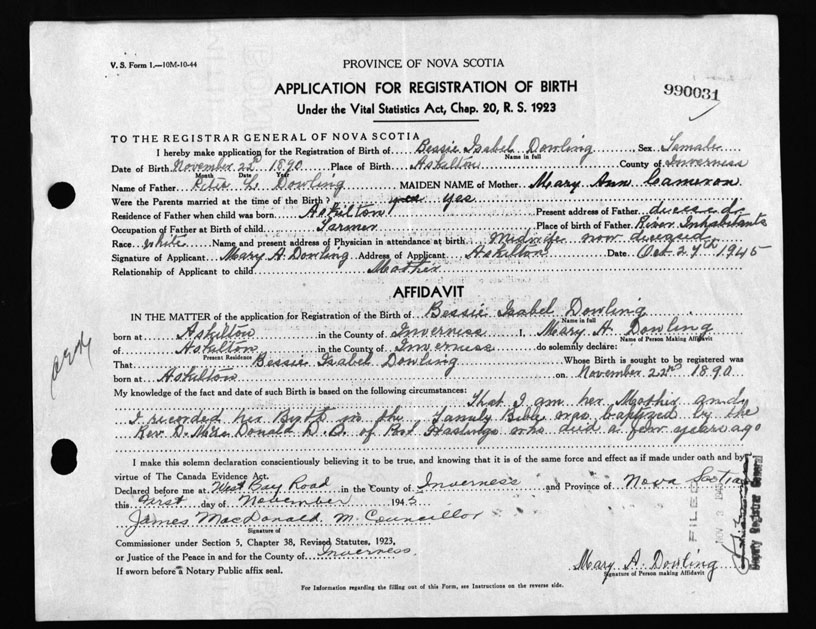 V. S. Form 1.—10M-10-44
PROVINCE OF NOVA SCOTIA
APPLICATION FOR REGISTRATION OF BIRTH
990031
Under the Vital Statistics Act, Chap. 20, R. S. 1923
TO THE REGISTRAR GENERAL OF NOVA SCOTIA
I hereby make application for the Registration of Birth of Bessie Isabel Dowling Sex Female
Name in full
Date of Birth November 22nd 1890 Place of Birth Askilton County of Inverness
Month Date Year
Name of Father L. Dowling MAIDEN NAME of Mother Mary Ann Cameron
Were the Parents married at the time of the Birth? yes yes
Residence of Father when child was born Askilton Present address of Father
Occupation of Father at Birth of child Farmer Place of birth of Father River Inhabitants
Race white Name and present address of Physician in attendance at birth Midwife now
Signature of Applicant Mary A. Dowling Address of Applicant Askilton Date Oct 27th 1945
Relationship of Applicant to child Mother
AFFIDAVIT
IN THE MATTER of the application for Registration of the Birth of Bessie Isabel Dowling
Name in full
born at Askilton in the County of Inverness I, Mary A Dowling
Name of Person Making Affidavit
of Askilton in the County of Inverness do solemnly declare:
Present Residence
That Bessie Isabel Dowling Whose Birth is sought to be registered was
born at Askilton on November 22nd 1890
My knowledge of the fact and date of such Birth is based on the following circumstances:
That I am her Mother and
I recorded her Birth in the Family Bible was baptized by the
Rev. D. Donald D. D. of Port Hastings who died a few years ago
I make this solemn declaration conscientiously believing it to be true, and knowing that it is of the same force and effect as if made under oath and by
virtue of The Canada Evidence Act.
Declared before me at West Bay Road in the County of Inverness and Province of Nova Scotia
this First day of November 1945
James MacDonald M. Councillor
Signature of
Commissioner under Section 5, Chapter 38, Revised Statutes, 1923,
or Justice of the Peace in and for the County of Inverness
If sworn before a Notary Public affix seal.
Mary A. Dowling
Signature of Person making Affidavit
FILED
NOV 3 1945
Deputy Registrar General
For Information regarding the filling out of this Form, see Instructions on the reverse side.